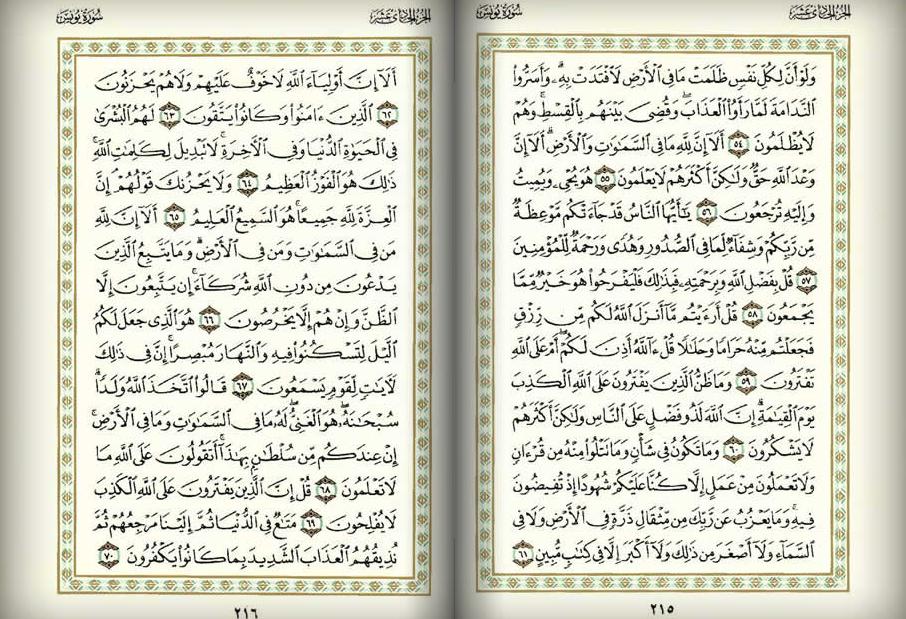 الجزء الحادي عشر
سورة يونس
وَلَوْ أَنَّ لِكُلِّ نَفْسٍ ظَلَمَتْ مَا فِي الْأَرْضِ لَافْتَدَتْ بِهِ ۗ وَأَسَرُّوا
النَّدَامَةَ لَمَّا رَأَوُا الْعَذَابَ ۖ وَقُضِيَ بَيْنَهُم بِالْقِسْطِ ۚ وَهُمْ
لَا يُظْلَمُونَ ٥٤ أَلَا إِنَّ لِلَّهِ مَا فِي السَّمَاوَاتِ وَالْأَرْضِ ۗ أَلَا إِنَّ
وَعْدَ اللَّهِ حَقٌّ وَلَٰكِنَّ أَكْثَرَهُمْ لَا يَعْلَمُونَ ٥٥ هُوَ يُحْيِي وَيُمِيتُ
وَإِلَيْهِ تُرْجَعُونَ ٥٦ يَا أَيُّهَا النَّاسُ قَدْ جَاءَتْكُم مَّوْعِظَةٌ
مِّن رَّبِّكُمْ وَشِفَاءٌ لِّمَا فِي الصُّدُورِ وَهُدًى وَرَحْمَةٌ لِّلْمُؤْمِنِينَ
٥٧ قُلْ بِفَضْلِ اللَّهِ وَبِرَحْمَتِهِ فَبِذَٰلِكَ فَلْيَفْرَحُوا هُوَ خَيْرٌ مِّمَّا
يَجْمَعُونَ ٥٨ قُلْ أَرَأَيْتُم مَّا أَنزَلَ اللَّهُ لَكُم مِّن رِّزْقٍ
فَجَعَلْتُم مِّنْهُ حَرَامًا وَحَلَالًا قُلْ آللَّهُ أَذِنَ لَكُمْ ۖ أَمْ عَلَى اللَّهِ
تَفْتَرُونَ ٥٩ وَمَا ظَنُّ الَّذِينَ يَفْتَرُونَ عَلَى اللَّهِ الْكَذِبَ
يَوْمَ الْقِيَامَةِ ۗ إِنَّ اللَّهَ لَذُو فَضْلٍ عَلَى النَّاسِ وَلَٰكِنَّ أَكْثَرَهُمْ
لَا يَشْكُرُونَ ٦٠ وَمَا تَكُونُ فِي شَأْنٍ وَمَا تَتْلُو مِنْهُ مِن قُرْآنٍ
وَلَا تَعْمَلُونَ مِنْ عَمَلٍ إِلَّا كُنَّا عَلَيْكُمْ شُهُودًا إِذْ تُفِيضُونَ
فِيهِ ۚ وَمَا يَعْزُبُ عَن رَّبِّكَ مِن مِّثْقَالِ ذَرَّةٍ فِي الْأَرْضِ وَلَا فِي
السَّمَاءِ وَلَا أَصْغَرَ مِن ذَٰلِكَ وَلَا أَكْبَرَ إِلَّا فِي كِتَابٍ مُّبِينٍ ٦١
٢١٥
الجزء الحادي عشر
سورة يونس
أَلَا إِنَّ أَوْلِيَاءَ اللَّهِ لَا خَوْفٌ عَلَيْهِمْ وَلَا هُمْ يَحْزَنُونَ
٦٢ الَّذِينَ آمَنُوا وَكَانُوا يَتَّقُونَ ٦٣ لَهُمُ الْبُشْرَىٰ
فِي الْحَيَاةِ الدُّنْيَا وَفِي الْآخِرَةِ ۚ لَا تَبْدِيلَ لِكَلِمَاتِ اللَّهِ ۚ
ذَٰلِكَ هُوَ الْفَوْزُ الْعَظِيمُ ٦٤ وَلَا يَحْزُنكَ قَوْلُهُمْ ۘ إِنَّ
الْعِزَّةَ لِلَّهِ جَمِيعًا ۚ هُوَ السَّمِيعُ الْعَلِيمُ ٦٥ أَلَا إِنَّ لِلَّهِ
مَن فِي السَّمَاوَاتِ وَمَن فِي الْأَرْضِ ۗ وَمَا يَتَّبِعُ الَّذِينَ
يَدْعُونَ مِن دُونِ اللَّهِ شُرَكَاءَ ۚ إِن يَتَّبِعُونَ إِلَّا
الظَّنَّ وَإِنْ هُمْ إِلَّا يَخْرُصُونَ ٦٦ هُوَ الَّذِي جَعَلَ لَكُمُ
اللَّيْلَ لِتَسْكُنُوا فِيهِ وَالنَّهَارَ مُبْصِرًا ۚ إِنَّ فِي ذَٰلِكَ
لَآيَاتٍ لِّقَوْمٍ يَسْمَعُونَ ٦٧ قَالُوا اتَّخَذَ اللَّهُ وَلَدًا ۗ
سُبْحَانَهُ ۖ هُوَ الْغَنِيُّ ۖ لَهُ مَا فِي السَّمَاوَاتِ وَمَا فِي الْأَرْضِ ۚ
إِنْ عِندَكُم مِّن سُلْطَانٍ بِهَٰذَا ۚ أَتَقُولُونَ عَلَى اللَّهِ مَا
لَا تَعْلَمُونَ ٦٨ قُلْ إِنَّ الَّذِينَ يَفْتَرُونَ عَلَى اللَّهِ الْكَذِبَ
لَا يُفْلِحُونَ ٦٩ مَتَاعٌ فِي الدُّنْيَا ثُمَّ إِلَيْنَا مَرْجِعُهُمْ ثُمَّ
نُذِيقُهُمُ الْعَذَابَ الشَّدِيدَ بِمَا كَانُوا يَكْفُرُونَ ٧٠
٢١٦